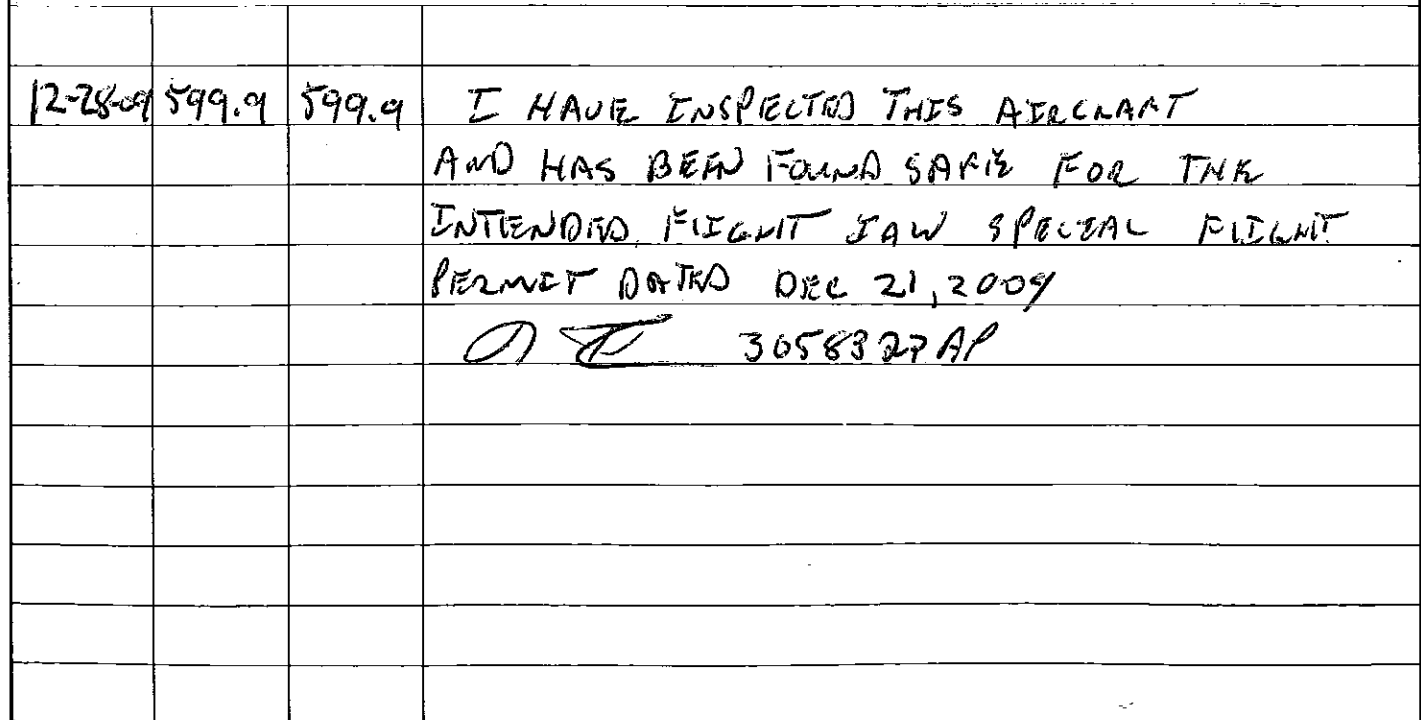 12-28-09 599.9 599.9 I HAVE INSPECTED THIS AIRCRAFT
AND HAS BEEN FOUND SAFE FOR THE
INTENDED FLIGHT IAW SPECIAL FLIGHT
PERMIT DATED DEC 21, 2009
3058327 AP